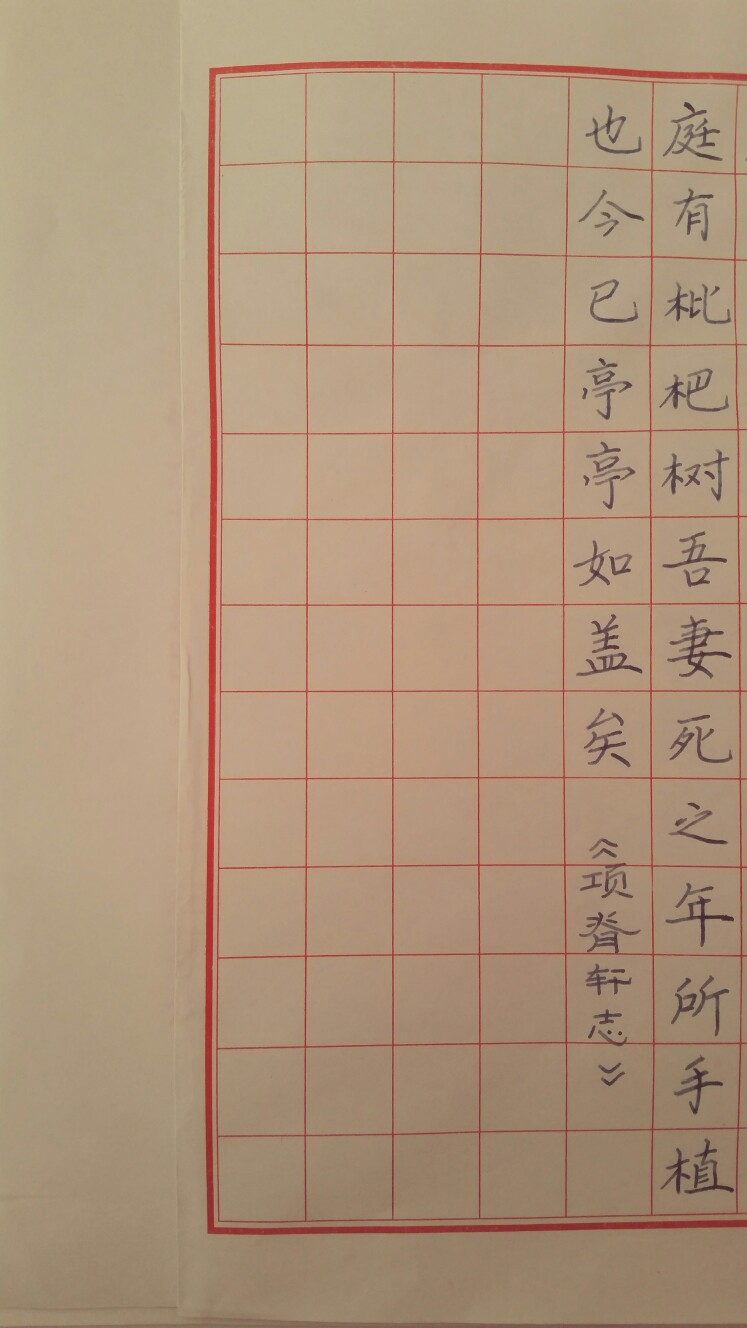 庭有枇杷树吾妻死之年所手植
也今已亭亭如盖矣 《项脊轩志》